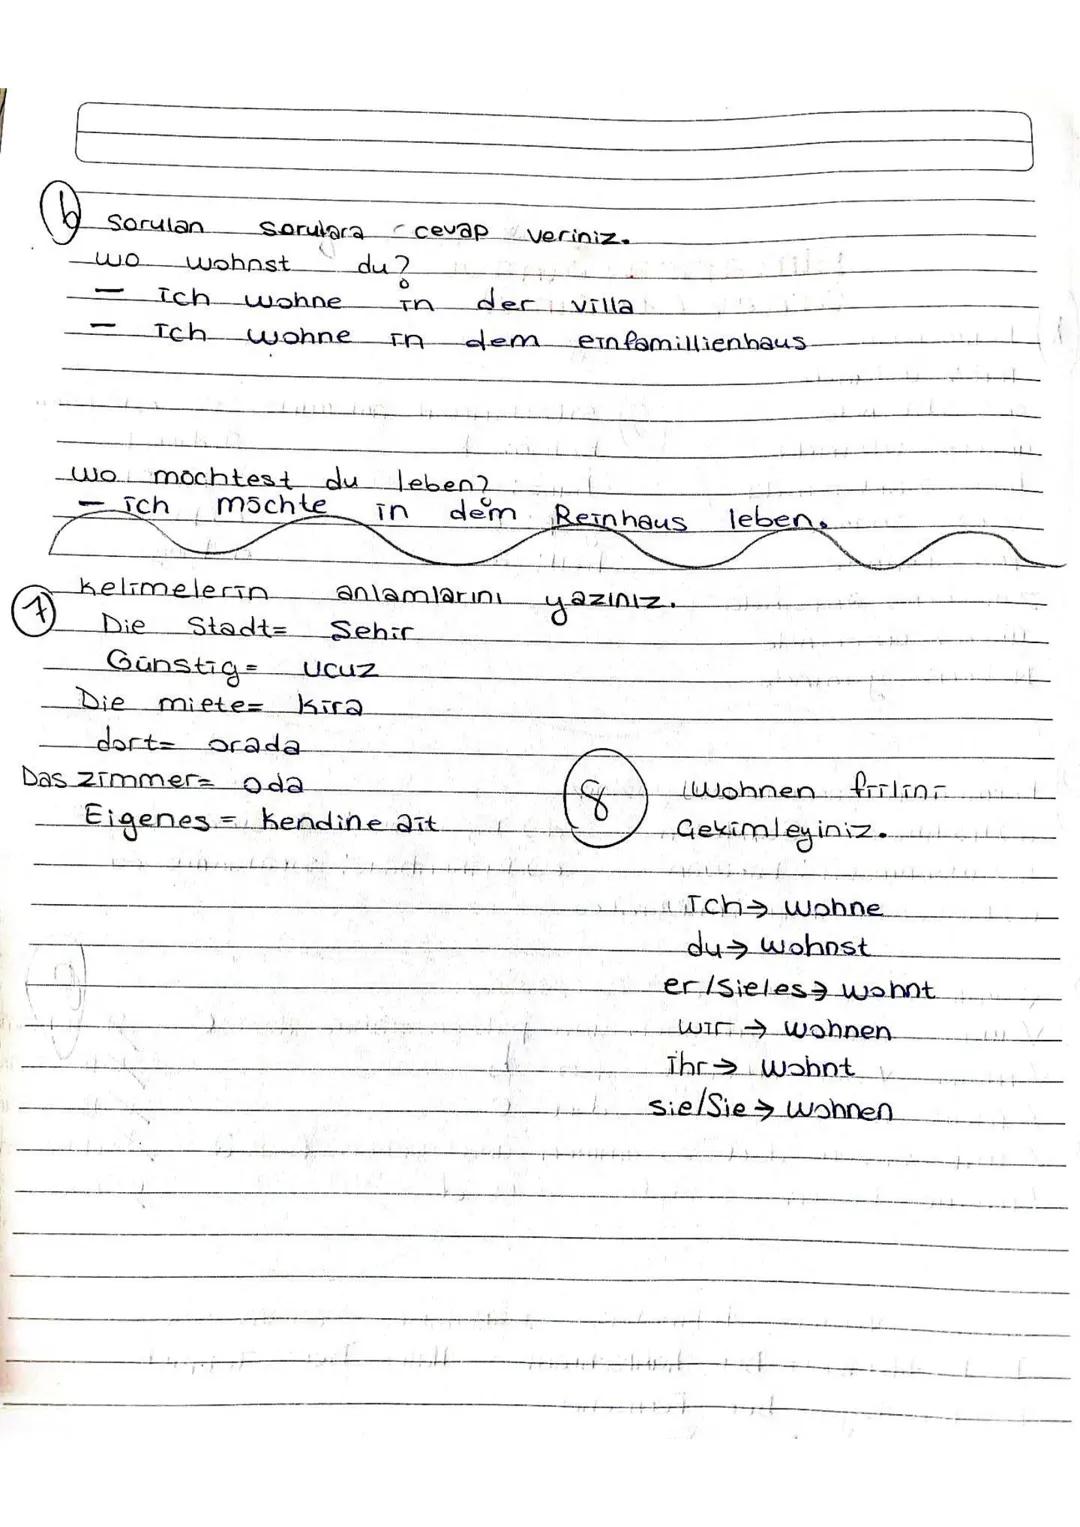 6 Sorulan sorulara cevap veriniz.
Wo wohnst du?
- Ich wohne in der villa
- Ich wohne in dem einfamillienhaus
Wo mochtest du leben?
- ich möchte in dem Reinhaus leben.
7 Kelimelerin anlamlarını yazınız.
Die Stadt= Sehir
Günstig= ucuz
Die miete= kira
dort= orada
Das zimmer= oda
Eigenes= kendine ait
8 Wohnen fiilini
Çekimleyiniz.
Ich→ wohne
du→ wohnst
er/sie/es→ wohnt
wir→ wohnen
ihr→ wohnt
sie/Sie→ wohnen